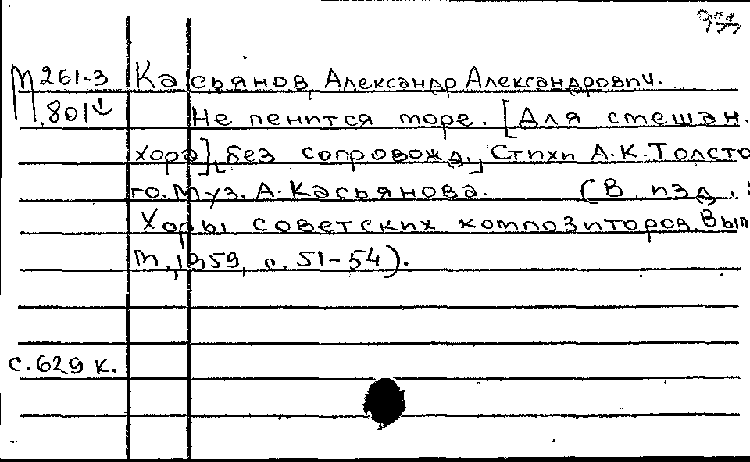 М 261-3 Касьянов, Александр Александрович.
801 Не пенится море. [Для смешан.
хора], без сопровожд. Стихи А.К.Толсто
го. Муз. А. Касьянова. (В изд.:
Хоры советских композиторов. Вып
М., 1959, с. 51-54).
с.629 к.